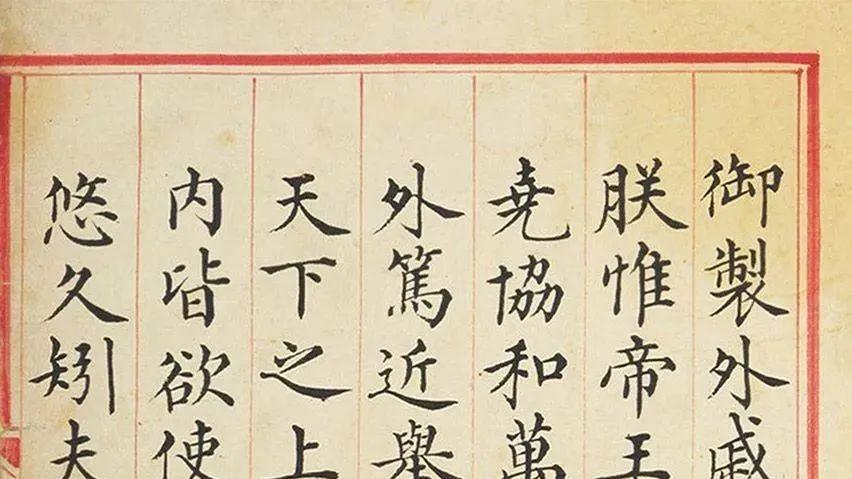 御製外戚
朕惟帝王
堯協和萬
外篤近舉
天下之上
内皆欲使
悠久矧夫